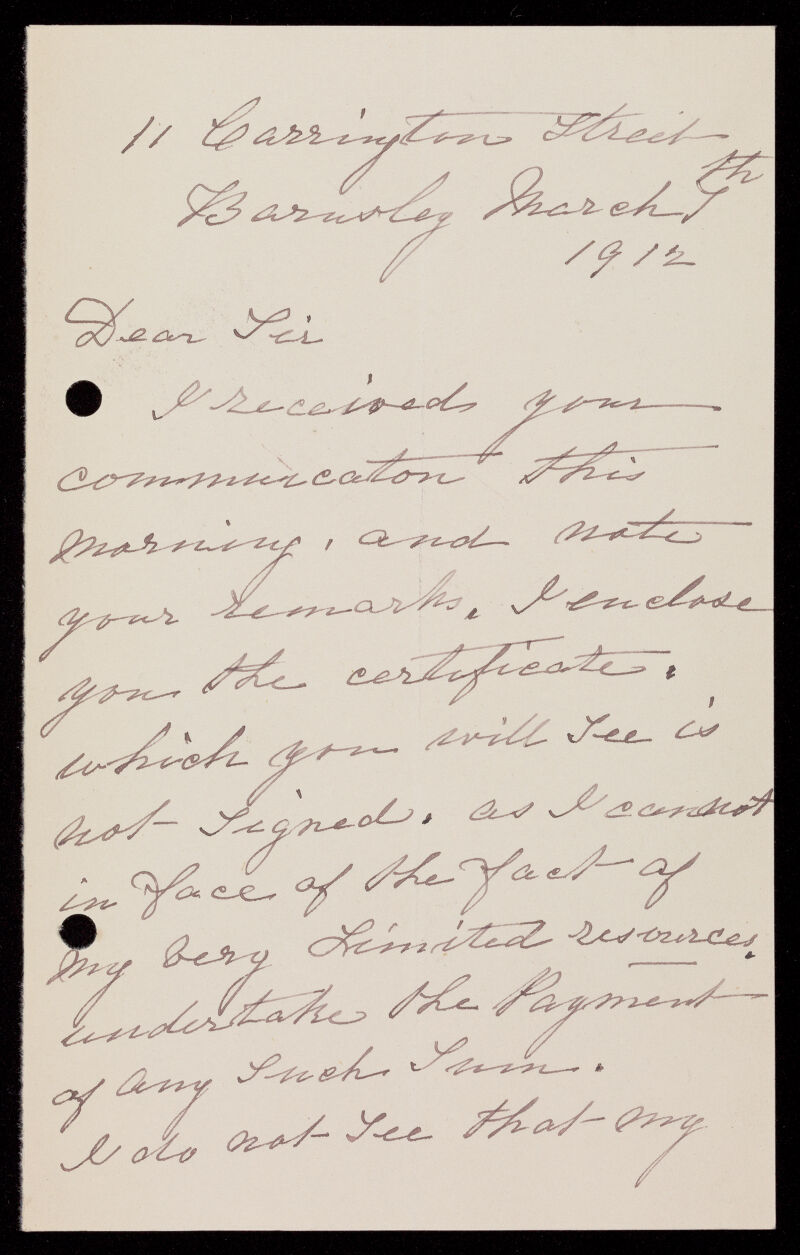 11 Carrington Street
Barnsley March 7th
1912
Dear Sir
I received your
commurcaton this
morning, and note
your remarks. I enclose
you the certificate.
which you will see is
not signed. as I cannot
in face of the fact of
my very Limited resources.
undertake the Payment
of any Such Sum.
I do not See that my